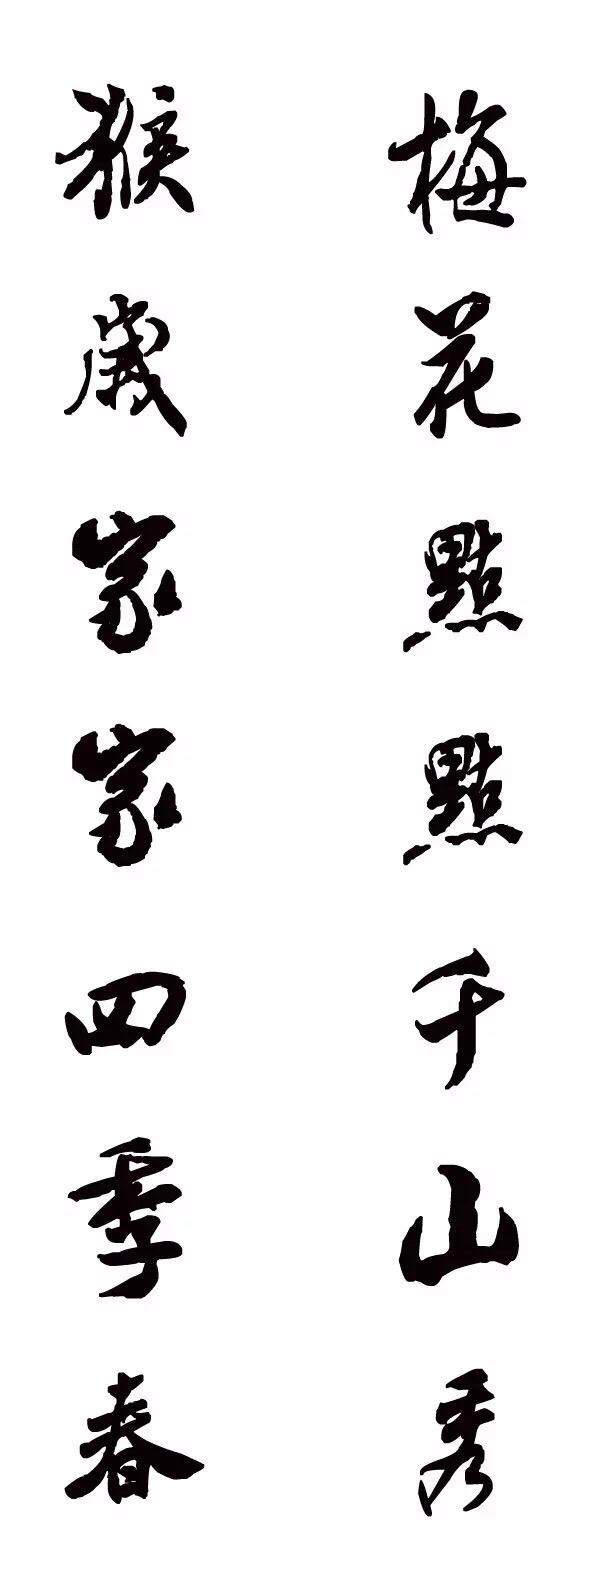 梅花點點千山秀
猴歲家家四季春